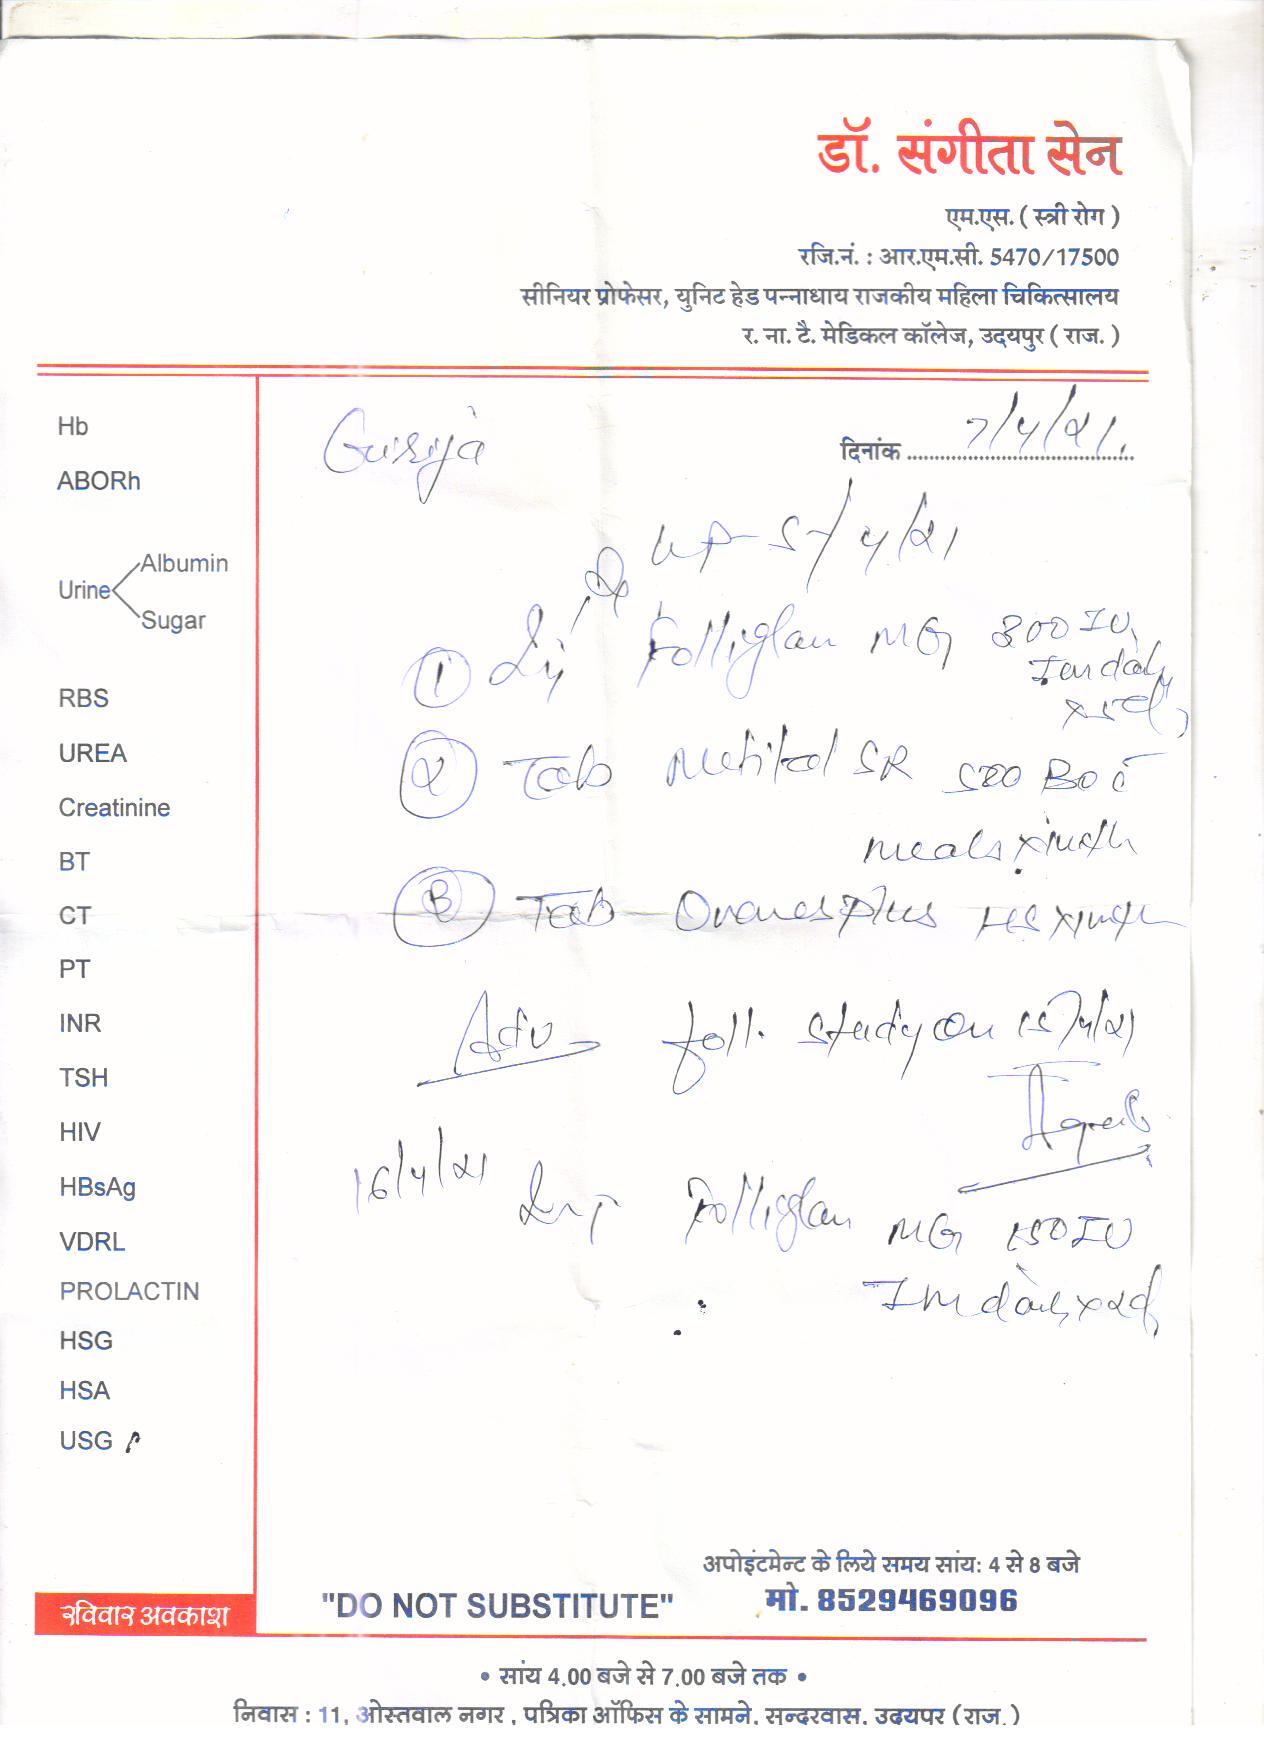 डॉ. संगीता सेन
एम.एस. ( स्त्री रोग )
रजि.नं. : आर.एम.सी. 5470/17500
सीनियर प्रोफेसर, युनिट हेड पन्नाधाय राजकीय महिला चिकित्सालय
र. ना. टै. मेडिकल कॉलेज, उदयपुर ( राज. )
दिनांक 7/4/21
Hb
ABORh
Urine
Albumin
Sugar
RBS
UREA
Creatinine
BT
CT
PT
INR
TSH
HIV
HBsAg
VDRL
PROLACTIN
HSG
HSA
USG
5/4/21
① Inj Folliglan MG 300 IU
Im daily
② Tab SR 500
meals x 1 mnth
③ Tab Plus HS x 1 mnth
Adv foll. study on 15/4/21
16/4/21 Inj Folliglan MG 150 IU
IM daily x 2d
अपोइंटमेन्ट के लिये समय सांय: 4 से 8 बजे
"DO NOT SUBSTITUTE" मो. 8529469096
रविवार अवकाश
• सांय 4.00 बजे से 7.00 बजे तक •
निवास : 11, ओस्तवाल नगर , पत्रिका ऑफिस के सामने, सुन्दरवास, उदयपुर (राज.)